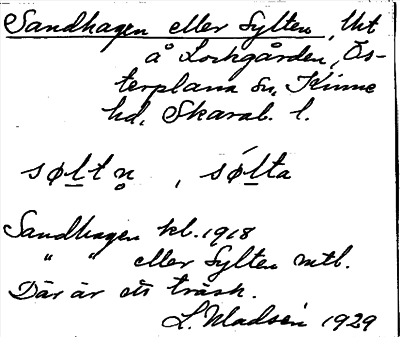 Sandhagen eller Sylten, Uht
å Lockgården, Ös-
terplana Sn, Kinne
hd, Skarab. l.
søltn̥, sǿlta
Sandhagen kl. 1918
" " eller Sylten mtb.
Där är ett träsk.
L. Madsén 1929